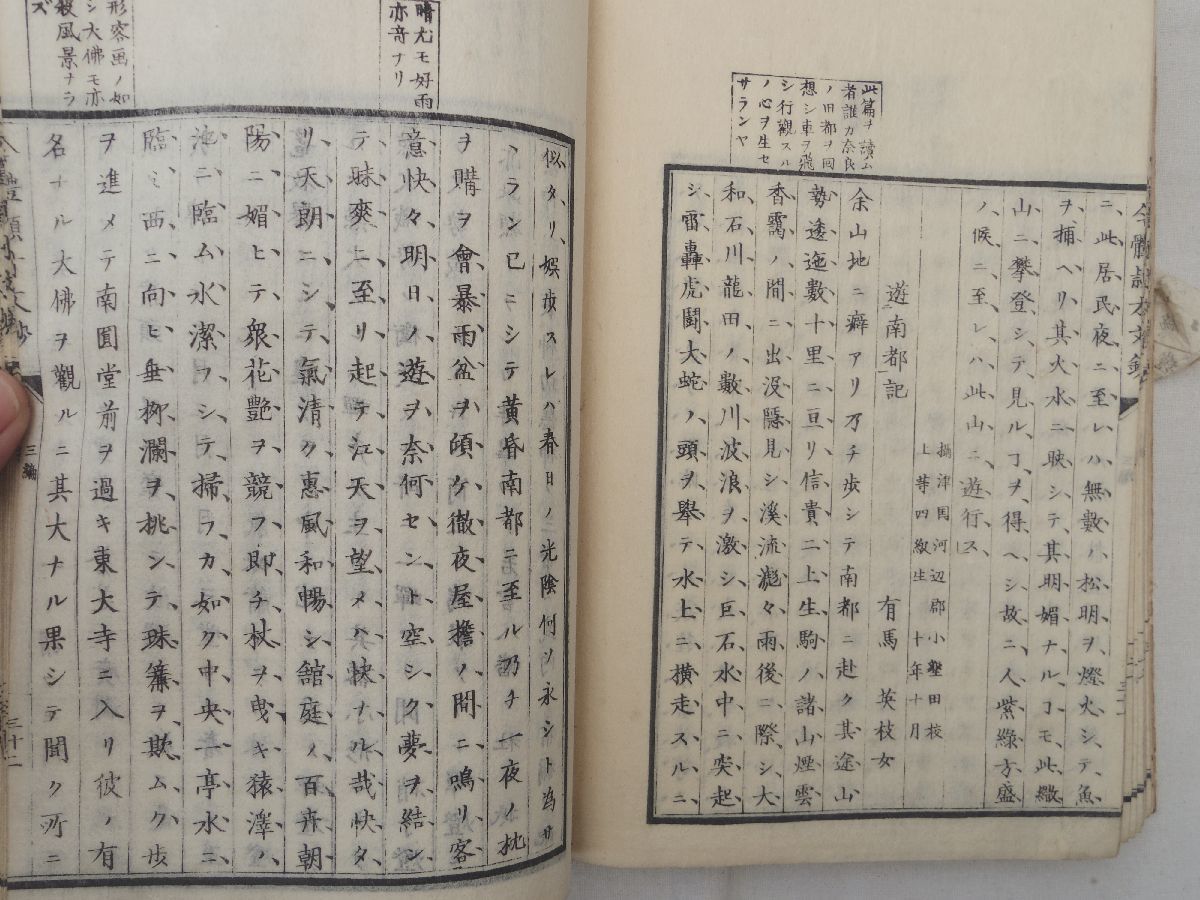 此篇ヲ讀ム
者誰カ奈良
ノ旧都ヲ回
想シ車ヲ飛
シ行觀スル
ノ心ヲ生セ
サランヤ
ニ、此居民夜ニ至レハ無數ノ松明ヲ燈火シテ魚
ヲ捕ヘリ其火水ニ映シテ其明媚ナルヿモ、此
山ニ攀登シテ見ルヿヲ得ヘシ故ニ人紫綠方盛
ノ候ニ至レハ此山ニ遊行ス
攝津国河辺郡小墾田校
上等四級生 十年十月
遊南都記 有馬 英枝女
余山地ニ癖アリ乃チ歩シテ南都ニ赴ク其途山
勢逶迤數十里ニ亘リ信貴二上生駒ノ諸山煙雲
香靄ノ間ニ出沒隱見シ溪流滮々雨後ニ際シ大
和石川龍田ノ數川波浪ヲ激シ巨石水中ニ突起
シ雷轟虎鬪大蛇ノ頭ヲ擧テ水上ニ横走スルニ
晴尤モ好雨
亦奇ナリ
形容画ノ如
シ大佛モ亦
殺風景ナラ
ズ
似タリ娯歩スレハ春日ノ光陰何ソ永シト為サ
ラン已ニシテ黄昏南都ニ至ル乃チ一夜ノ枕
ヲ購ヲ會暴雨盆ヲ傾ケ徹夜屋擔ノ間ニ鳴リ客
意怏々明日ノ遊ヲ奈何セント空シク夢ヲ結シ
テ昧爽ニ至リ起テ江天ヲ望メハ快ナル哉快タ
リ天朗ニシテ氣清ク惠風和暢シ舘庭ノ百卉朝
陽ニ媚ヒテ衆花艷ヲ競フ即チ杖ヲ曳キ猿澤ノ
池ニ臨ム水潔フシテ掃フカ如ク中央一亭水ニ
臨ミ西ニ向ヒ垂柳瀾ヲ挑ンテ珠簾ヲ欺ムク歩
ヲ進メテ南圓堂前ヲ過キ東大寺ニ入リ彼ノ有
名ナル大佛ヲ觀ルニ其大ナル果シテ聞ク所ニ
三編
三十二